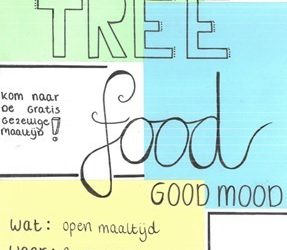 TREE
kom naar
de gratis
gezellige
maaltijd!
food
GOOD MOOD
wat: open maaltijd
waar: